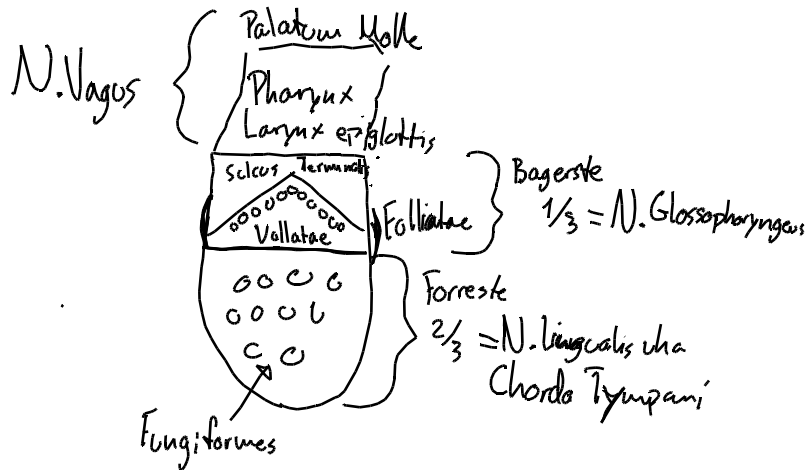 Palatum Molle
N. Vagus
Pharynx
Larynx epiglottis
Sulcus Terminalis
Vallatae
Folliatae
Bagerste
1/3 = N. Glossopharyngeus
Forreste
2/3 = N. Lingualis via
Chorda Tympani
Fungiformes